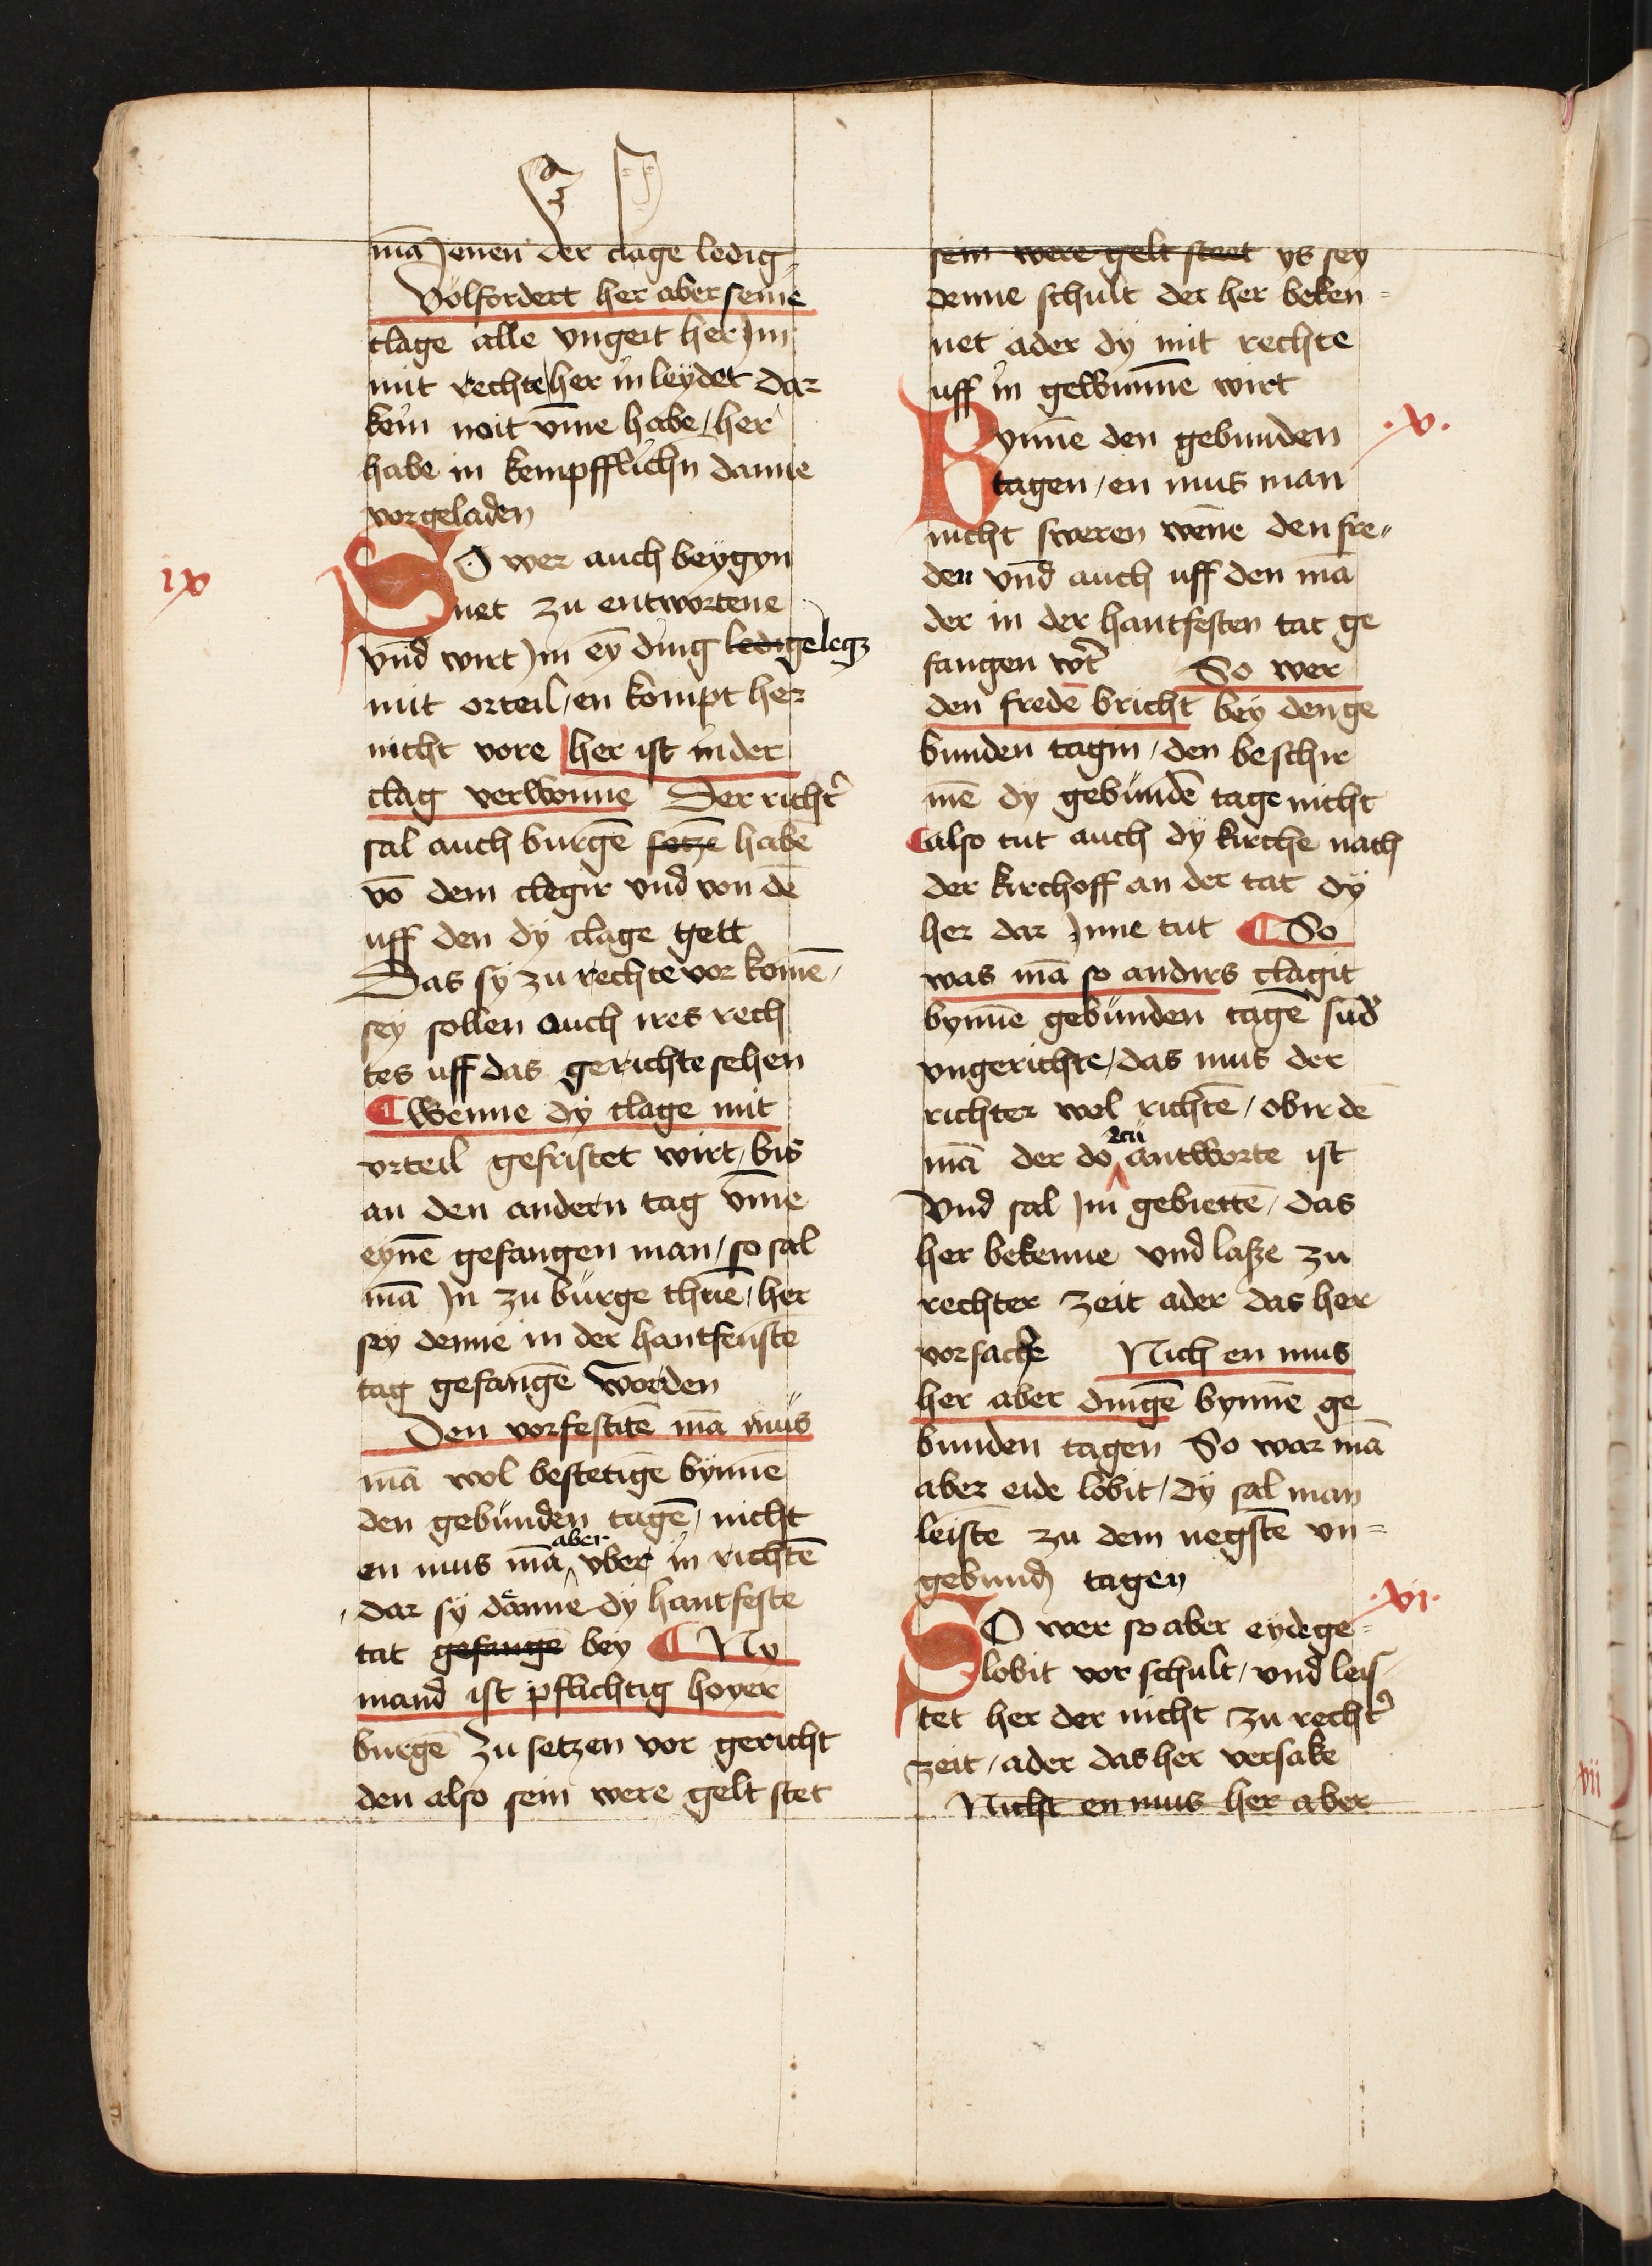 mā Jenen der clage ledig
Volfordert her aber seine
clage alle vngeit her Jm
mit rechte her in leydet dar
kein noit vm̄e habe / her
habe in kempfflichn danne
vorgeladen
ix
SO wer auch beygyn
net zu entwortene
vnd wirt Jm ey ding ledige legz
mit orteil / en kompt her
nicht vore her ist in der
clag verwonne Der richt
sal auch burgē setzē habē
vō dem clegir vnd von dē
uff den dy clage gett
Das sy zu rechte vor komē /
sey sollen auch ires rech
tes uff das gerichte sehen
¶ Wenne dy clage mit
vrteil gefristet wirt / bis
an den andern tag vm̄e
eynē gefangen man / so sal
mā Jn zu burge thūe / her
sey denne in der hantfenste
tag gefangē worden
Den vorfestitē mā mus
mā wol bestetigē bynnē
den gebunden tagē / nicht
aber
en mus mā vber in richtē
dar sy danne dy hantfeste
tat gefangē bey ¶ Ny
mand ist pflichtig hoyer
burgē zu setzen vor gericht
den also sein were gelt stet
sein were gelt steet ys sey
denne schult der her beken =
net ader dy mit rechte
uff in gewunnē wirt
.v.
Bynnē den gebunden
tagen / en mus man
nicht sweren wēne den fre
den vnd auch uff den mā
der in der hantfesten tat ge
fangen wt So wer
den fredē bricht bey den ge
bunden tagin / den beschir
mē dy gebundē tage nicht
¶ also tut auch dy kirche nach
der kirchoff an der tat dy
her dar Jnne tut ¶ So
was mā so andirs clagit
bynnē gebunden tagē sūd
vngerichte / das mus der
richter wol richtē / obir dē
zcu
mā der do antworte ist
Vnd sal Jm gebiettē / das
her bekenne vnd lasze zu
rechter zeit ader das her
vorsache Nich en mus
her aber dingē bynnē ge
bunden tagen So war mā
aber eide lobit / dy sal man
leistē zu dem negstē vn =
gebund tagen
.vi.
SO wer so aber eyde ge =
lobit vor schult / vnd leis
tet her der nicht zu recht
zeit / ader das her versake
Nicht en mus her aber
vii